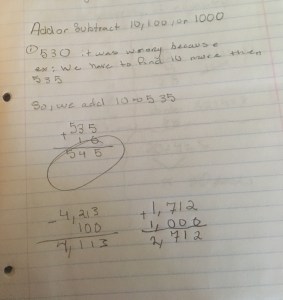 Add or Subtract 10, 100, or 1000
① 530 it was wrong because
ex: we have to find 10 more then
535
So, we add 10 to 535
535
+ 10
545
- 4,213
100
4,113
+ 1,712
1,000
2,712